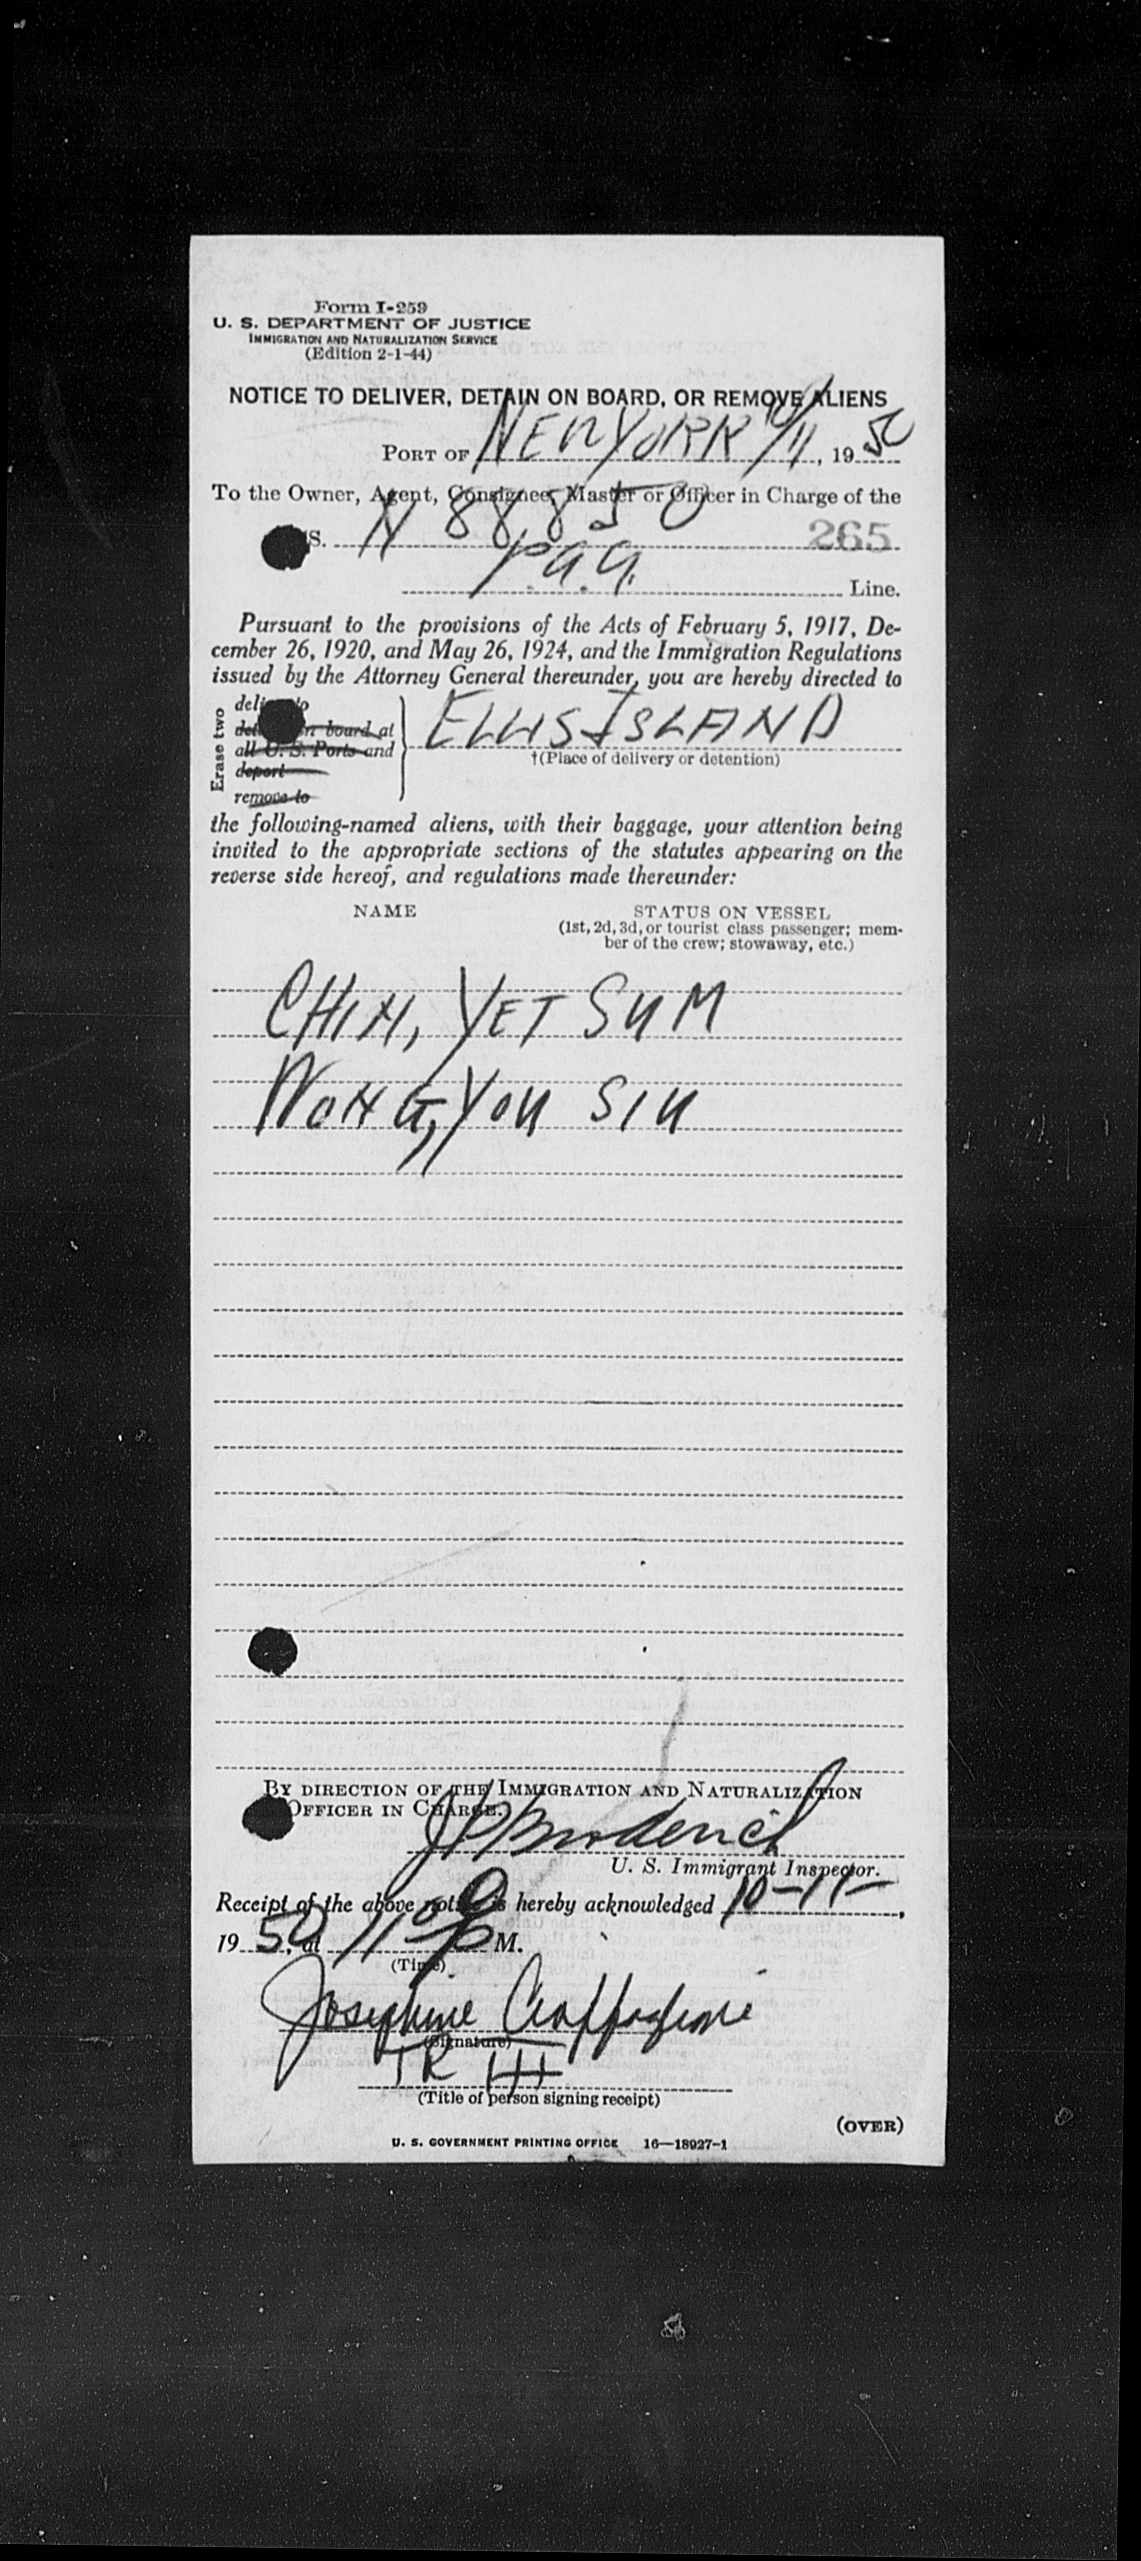 Form I-259
U. S. DEPARTMENT OF JUSTICE
IMMIGRATION AND NATURALIZATION SERVICE
(Edition 2-1-44)
NOTICE TO DELIVER, DETAIN ON BOARD, OR REMOVE ALIENS
PORT OF NEW YORK 10/11, 1950
To the Owner, Agent, Consignee, Master or Officer in Charge of the
S. N 88850 265
P.A.A. Line.
Pursuant to the provisions of the Acts of February 5, 1917, De-
cember 26, 1920, and May 26, 1924, and the Immigration Regulations
issued by the Attorney General thereunder, you are hereby directed to
Erase two
deliver to
detain on board at
all U. S. Ports and
deport
remove to
ELLIS ISLAND
†(Place of delivery or detention)
the following-named aliens, with their baggage, your attention being
invited to the appropriate sections of the statutes appearing on the
reverse side hereof, and regulations made thereunder:
NAME STATUS ON VESSEL
(1st, 2d, 3d, or tourist class passenger; mem-
ber of the crew; stowaway, etc.)
CHIN, YET SUM
WONG, YOU SIU
BY DIRECTION OF THE IMMIGRATION AND NATURALIZATION
OFFICER IN CHARGE.
U. S. Immigrant Inspector.
Receipt of the above notice is hereby acknowledged 10-11-,
1950, at 11 00 P M.
(Time)
Josephine
(Signature)
TR III
(Title of person signing receipt)
(OVER)
U. S. GOVERNMENT PRINTING OFFICE 16—18927-1